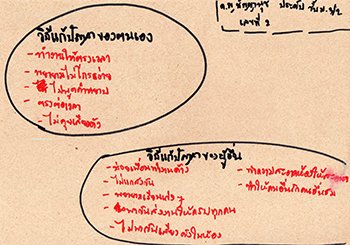 ด.ญ. ชั้น ม.2/2
เลขที่ 2
วิธีแก้ปัญหาของตนเอง
- ทำงานให้ตรงเวลา
- พยายามไม่โกรธง่าย
- ไม่พูดคำหยาบ
- ตรงต่อเวลา
- ไม่คุยเสียงดัง
วิธีแก้ปัญหาของผู้อื่น
- ช่วยเพื่อนทำงานบ้าง
- ไม่แกล้งกัน
- พยายามเรียนเก่ง ๆ
- กันส่งงานให้ครบทุกคน
- ไม่พากันเสียงดังในห้อง
- ทำความสะอาดห้องให้สะอาด
- ทำให้คนอื่นรักคนอื่น